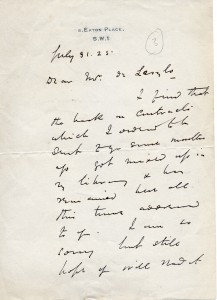 Eaton Place,
S.W.1
July 31. 25
Dear Mr. de Laszlo
I find that
the book on Contracts
which I ordered to be
sent you some months
ago got mixed up in
my library & has
remained here all
this time addressed
to you. I am so
sorry but still
hope you will